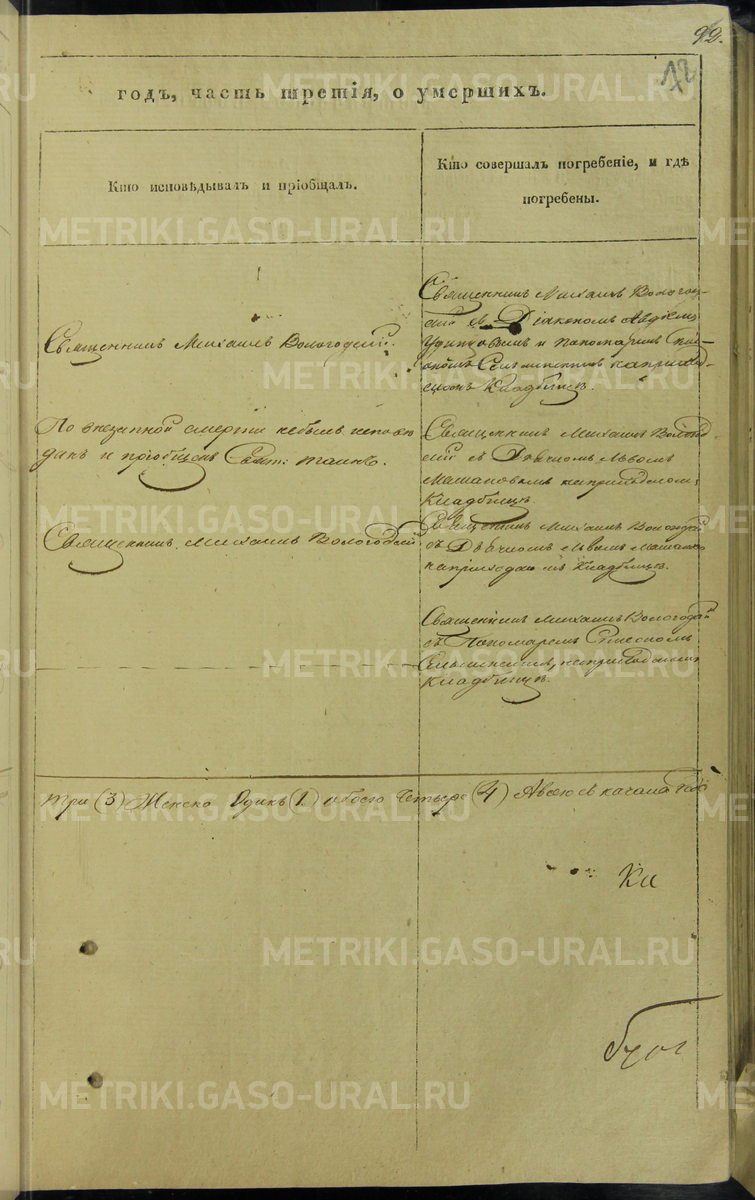 92.
72
годъ, часть третія, о умершихъ.
Кто исповѣдывалъ и пріобщалъ.
Кто совершалъ погребеніе, и гдѣ
погребены.
Священникъ Михаилъ Вологодскій.
Священникъ Михаилъ Вологод-
скій съ Діакономъ Авдіемъ
и пономаремъ
на приход-
скомъ Кладбищѣ.
По внезапной смерти небылъ исповѣ
данъ и пріобщенъ Свят: таинъ.
Священникъ Михаилъ Вологод
скій съ Дьячкомъ Львомъ
на приходскомъ
Кладбищѣ.
Священникъ Михаилъ Вологодскій
Священникъ Михаилъ Вологодскій
съ Дьячкомъ Львомъ
на приходскомъ Кладбищѣ.
Священникъ Михаилъ Вологодскій
съ Пономаремъ Симеономъ
на приходскомъ
Кладбищѣ.
три (3) Женска Одинъ (1) обоего Четыре (4) А всего съ начала года
METRIKI.GASO-URAL.RU